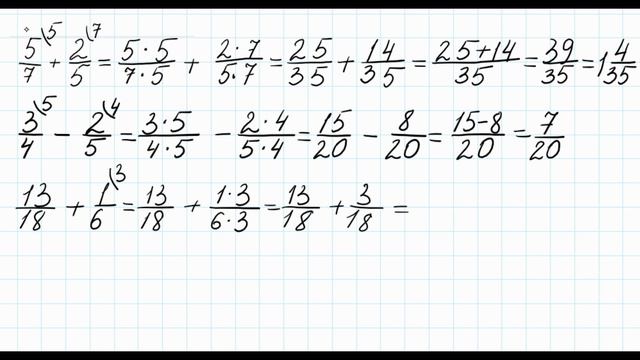 5/7 \5 + 2/5 \7 = 5·5/7·5 + 2·7/5·7 = 25/35 + 14/35 = 25+14/35 = 39/35 = 1 4/35
3/4 \5 - 2/5 \4 = 3·5/4·5 - 2·4/5·4 = 15/20 - 8/20 = 15-8/20 = 7/20
13/18 + 1/6 \3 = 13/18 + 1·3/6·3 = 13/18 + 3/18 =